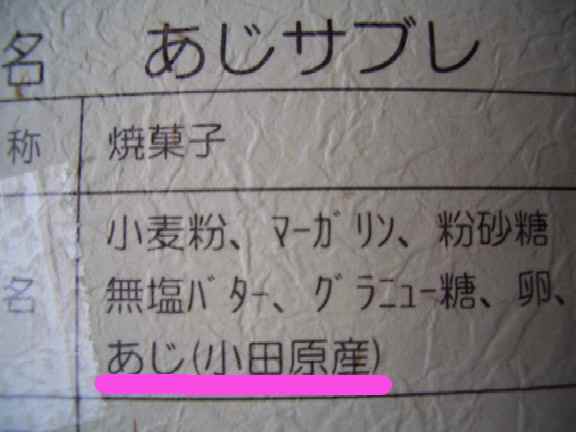 名 あじサブレ
称 焼菓子
小麦粉、マーガリン、粉砂糖
名 無塩バター、グラニュー糖、卵、
あじ(小田原産)